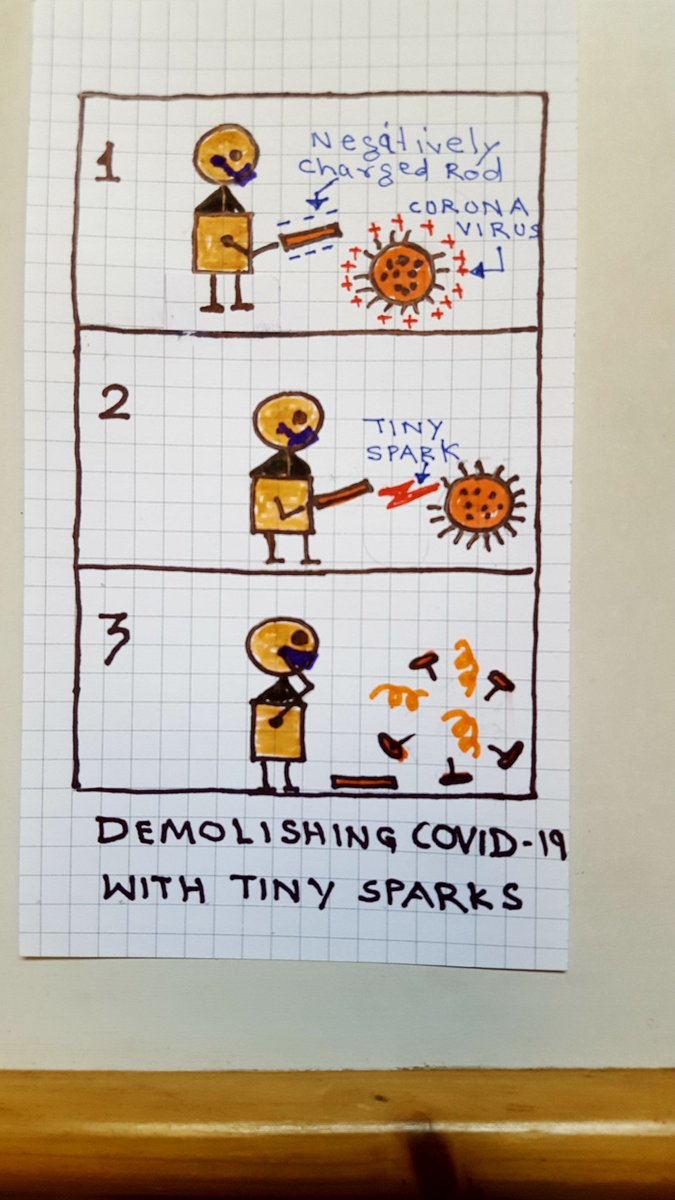 1
Negatively
Charged Rod
CORONA
VIRUS
2
TINY
SPARK
3
DEMOLISHING COVID-19
WITH TINY SPARKS